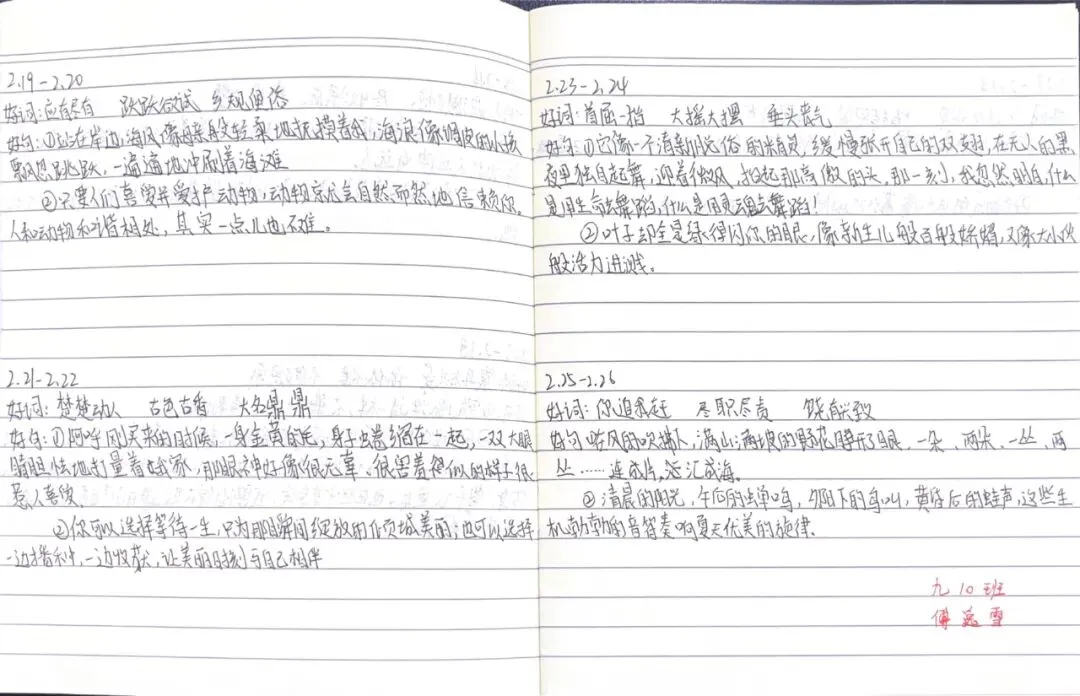 2.19-2.20
好词:应有尽有 跃跃欲试 乡规俚俗
好句:①站在岸边,海风像母亲般轻柔地抚摸着我,海浪像调皮的小孩
飘忽跳跃,一遍遍地冲刷着海滩
②只要人们喜爱并爱护动物,动物就会自然而然地信赖你。
人和动物和谐相处,其实一点儿也不难。
2.21-2.22
好词:楚楚动人 古色古香 大名鼎鼎
好句:①阿呆刚买来的时候,一身金黄的毛,身子也卷缩在一起,一双大眼
睛胆怯地打量着我家,那眼神好像很无辜、很害羞似的样子很
惹人喜欢
②你可以选择等待一生,只为那瞬间绽放的倾城美丽;也可以选择
一边播种,一边收获,让美丽时刻与自己相伴
2.23-2.24
好词:首屈一指 大摇大摆 垂头丧气
好句①它像一个清新脱俗的精灵,缓慢张开自己的双翅,在无人的黑
夜里独自起舞,迎着微风,抬起那高傲的头,那一刻,我忽然明白,什么
是用生命去舞蹈,什么是用灵魂去舞蹈!
②叶子却全是绿得闪你的眼,像新生儿般百般娇媚,又像大小伙
般活力迸溅。
2.25-2.26
好词:你追我赶 尽职尽责 饶有兴致
好句 咯风的吹拂下,满山满坡的野花睁开了眼、一朵、两朵、一丛、两
丛……连成片,汇成海。
②清晨的阳光,午间的蝉鸣,夕阳下的鸟叫,黄昏后的蛙声,这些生
机勃勃的音符奏响夏天优美的旋律.
九10班
傅逸雪